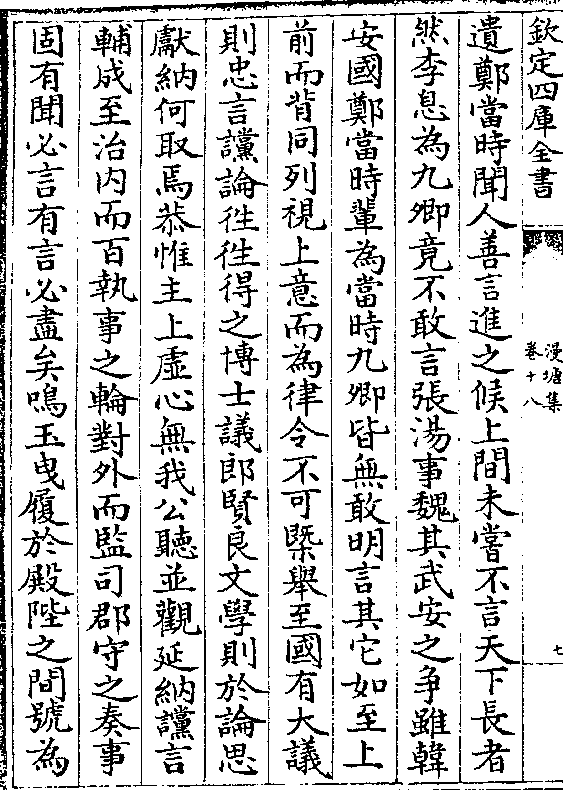 欽定四庫全書
漫塘集
卷十八
七
遺鄭當時聞人善言進之候上間未嘗不言天下長者
然李息為九卿竟不敢言張湯事魏其武安之争雖韓
安國鄭當時輩為當時九卿皆無敢明言其它如至上
前而背同列視上意而為律令不可槩舉至國有大議
則忠言讜論徃徃得之博士議郎賢良文學則於論思
獻納何取焉恭惟主上虛心無我公聽並觀延納讜言
輔成至治内而百執事之輪對外而監司郡守之奏事
固有聞必言有言必盡矣鳴玉曳履於殿陛之間號為